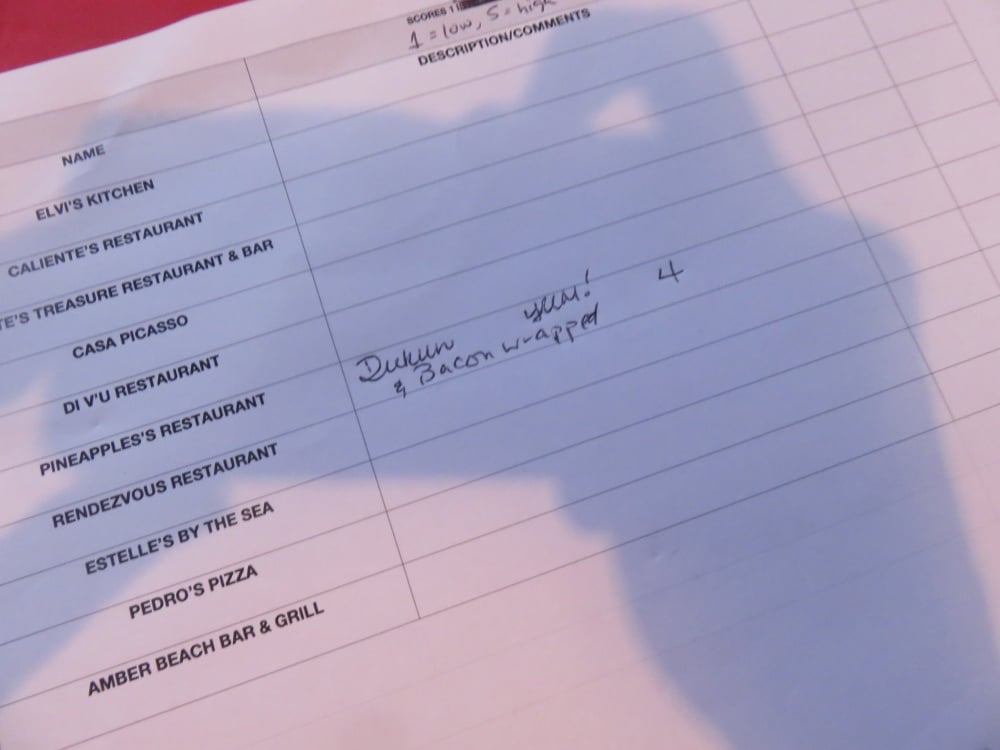 SCORES 1
1 = low, 5 = high
DESCRIPTION/COMMENTS
NAME
ELVI'S KITCHEN
CALIENTE'S RESTAURANT
TE'S TREASURE RESTAURANT & BAR
CASA PICASSO
DI V'U RESTAURANT
yum! 4
& Bacon wrapped
PINEAPPLES'S RESTAURANT
RENDEZVOUS RESTAURANT
ESTELLE'S BY THE SEA
PEDRO'S PIZZA
AMBER BEACH BAR & GRILL